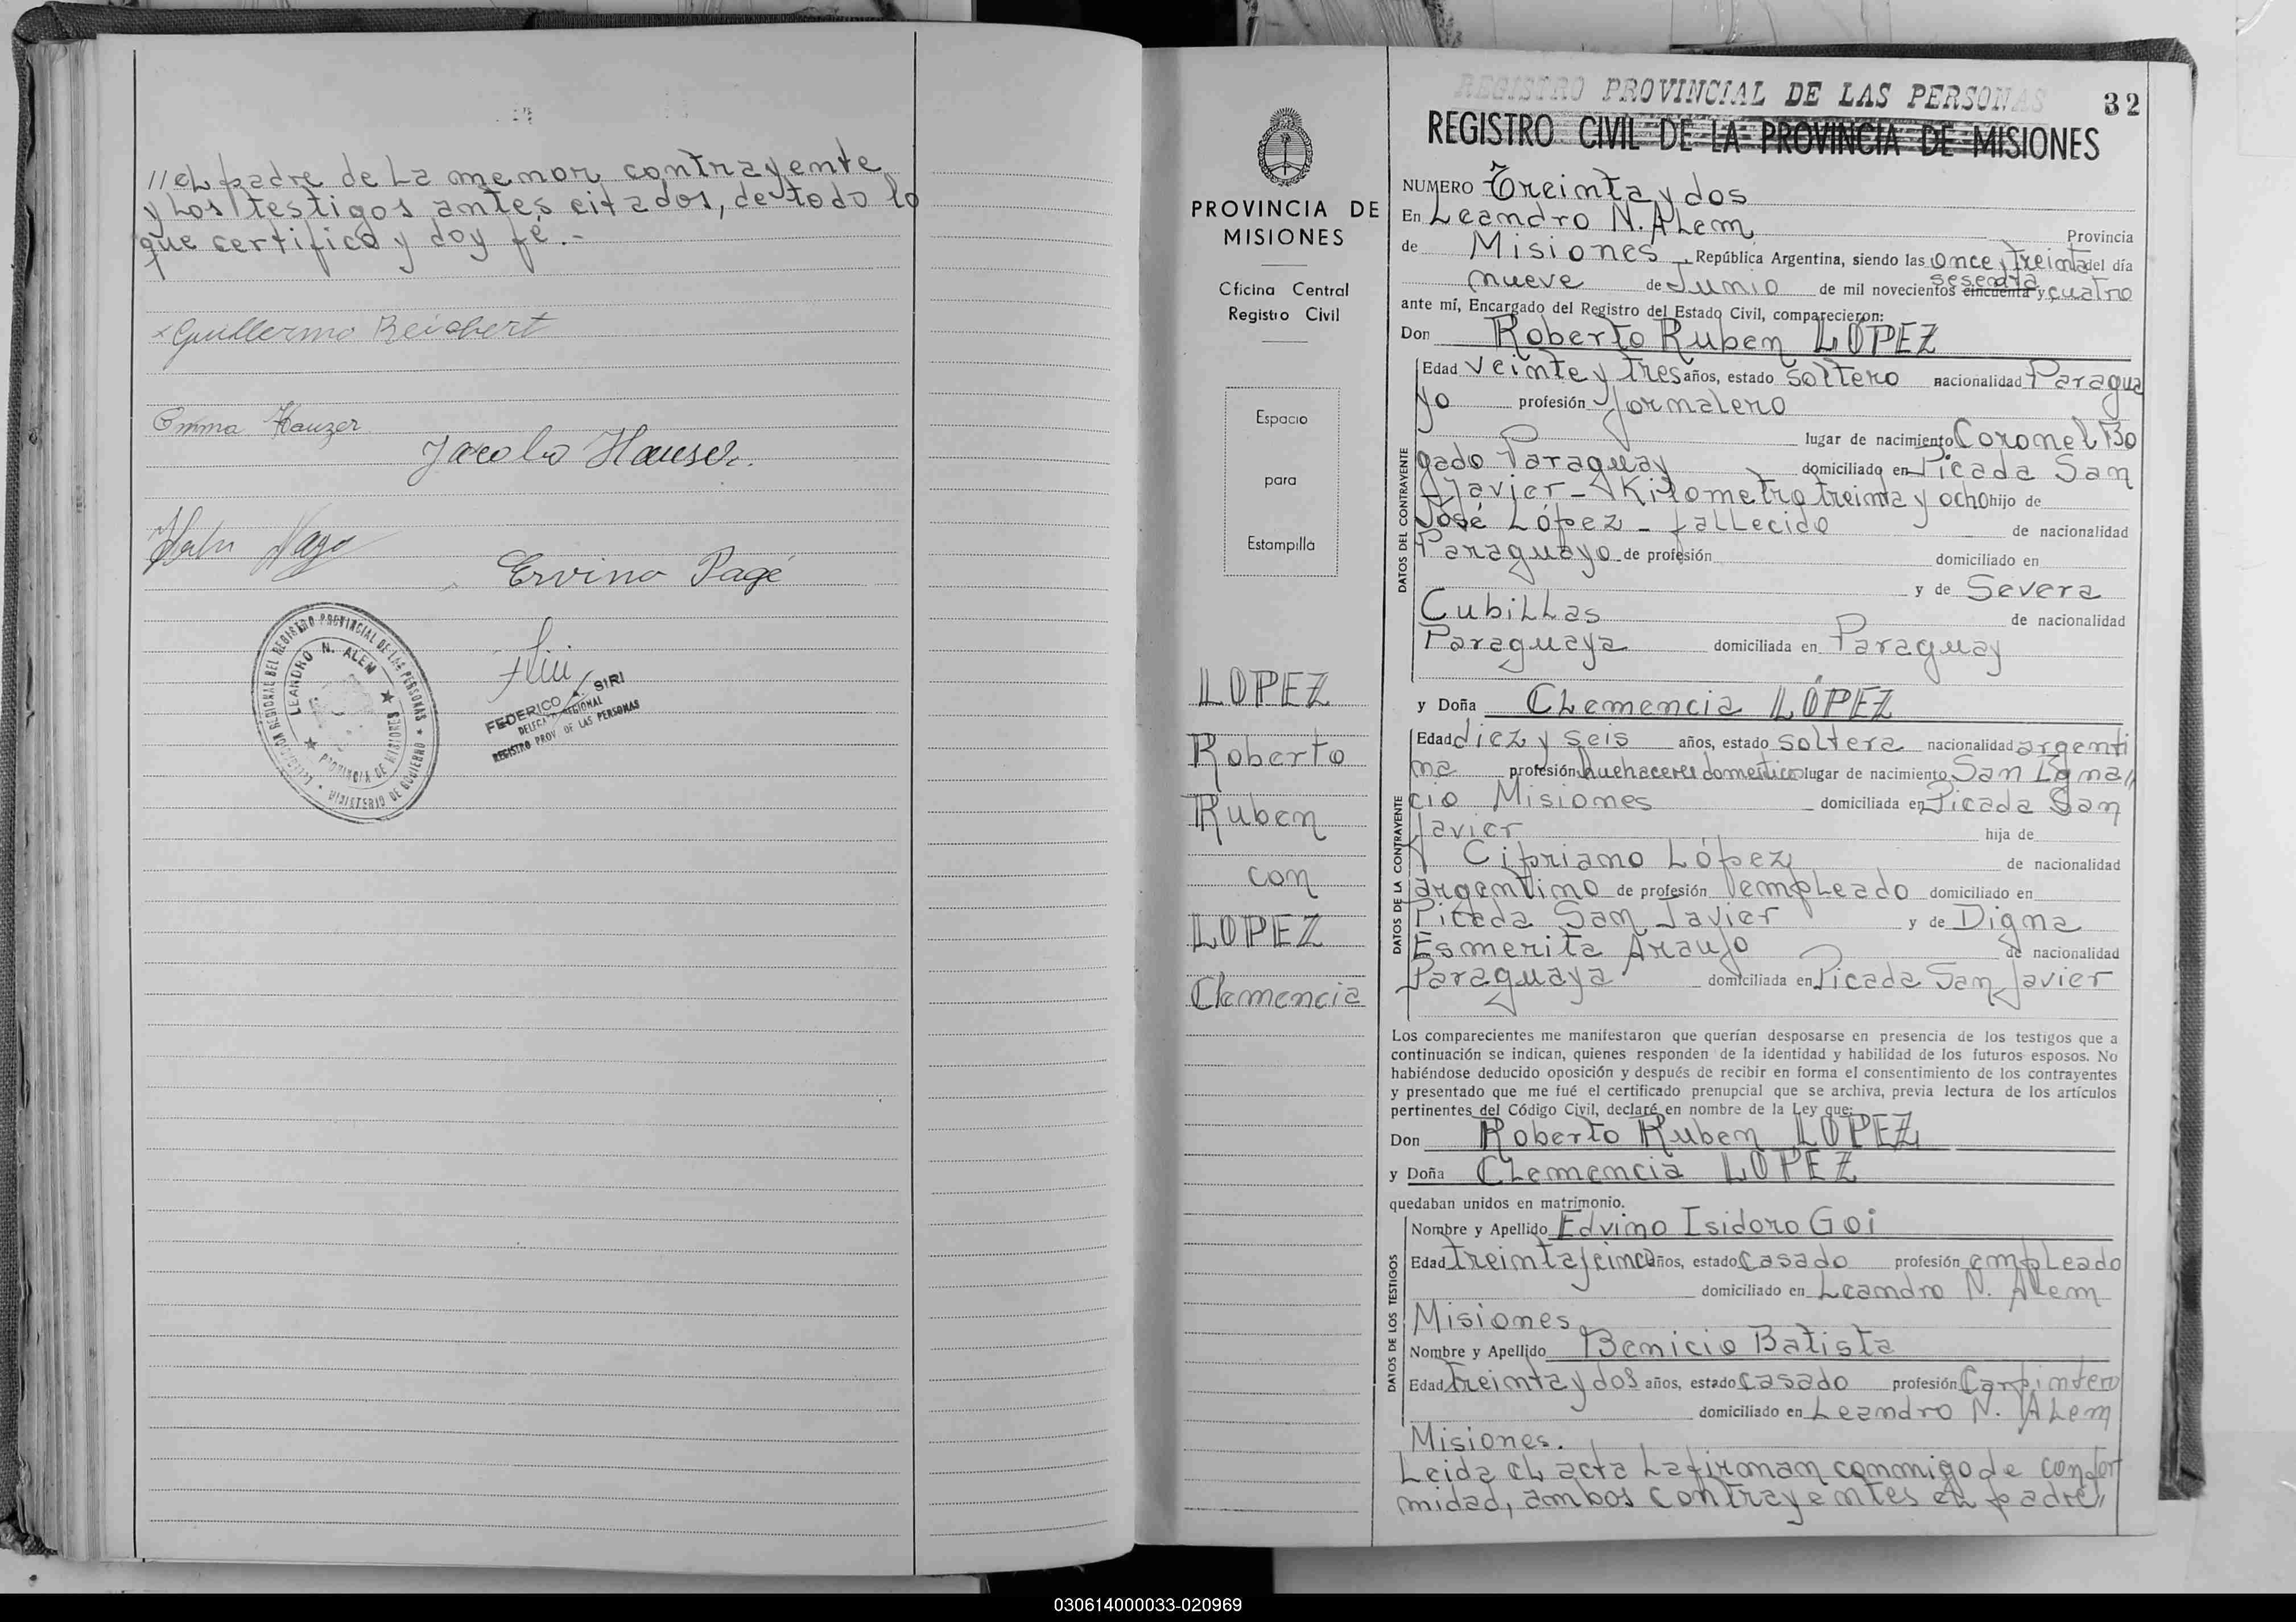 // el padre de la menor contrayente
y los testigos antes citados, de todo lo
que certifico y doy fé.-
Guillermo Reichert
Emma Hauzer
Jacobo Hauser.
Ervino Pagé
DELEGACION REGIONAL DEL REGISTRO PROVINCIAL DE LAS PERSONAS
MINISTERIO DE GOBIERNO
LEANDRO N. ALEM
PROVINCIA DE MISIONES
FEDERICO A. SIRI
DELEGADO REGIONAL
REGISTRO PROV. DE LAS PERSONAS
PROVINCIA DE
MISIONES
Oficina Central
Registro Civil
Espacio
para
Estampilla
LOPEZ
Roberto
Ruben
con
LOPEZ
Clemencia
REGISTRO PROVINCIAL DE LAS PERSONAS
32
REGISTRO CIVIL DE LA PROVINCIA DE MISIONES
NUMERO Treinta y dos
En Leandro N. Alem Provincia
de Misiones, República Argentina, siendo las once y treinta del día
nueve de Junio de mil novecientos cincuenta sesenta y cuatro
ante mí, Encargado del Registro del Estado Civil, comparecieron:
Don Roberto Ruben LOPEZ
DATOS DEL CONTRAYENTE
Edad veinte y tres años, estado soltero nacionalidad Paragua
yo profesión jornalero
lugar de nacimiento Coronel Bo
gado Paraguay domiciliado en Picada San
Javier - Kilometro treinta y ocho hijo de
José López - fallecido de nacionalidad
Paraguayo de profesión domiciliado en
y de Severa
Cubillas de nacionalidad
Paraguaya domiciliada en Paraguay
y Doña Clemencia LÓPEZ
DATOS DE LA CONTRAYENTE
Edad diez y seis años, estado soltera nacionalidad argenti
na profesión quehaceres domesticos lugar de nacimiento San Igna//
cio Misiones domiciliada en Picada San
Javier hija de
Cipriano López de nacionalidad
argentino de profesión empleado domiciliado en
Picada San Javier y de Digna
Esmerita Araujo de nacionalidad
Paraguaya domiciliada en Picada San Javier
Los comparecientes me manifestaron que querían desposarse en presencia de los testigos que a
continuación se indican, quienes responden de la identidad y habilidad de los futuros esposos. No
habiéndose deducido oposición y después de recibir en forma el consentimiento de los contrayentes
y presentado que me fué el certificado prenupcial que se archiva, previa lectura de los artículos
pertinentes del Código Civil, declaré en nombre de la Ley que:
Don Roberto Ruben LOPEZ
y Doña Clemencia LOPEZ
quedaban unidos en matrimonio.
DATOS DE LOS TESTIGOS
Nombre y Apellido Edvino Isidoro Goi
Edad treinta y cinco años, estado casado profesión empleado
domiciliado en Leandro N. Alem
Misiones
Nombre y Apellido Benicio Batista
Edad treinta y dos años, estado casado profesión Carpintero
domiciliado en Leandro N. Alem
Misiones.
Leida el acta la firman conmigo de confor
midad, ambos contrayentes el padre//
030614000033-020969